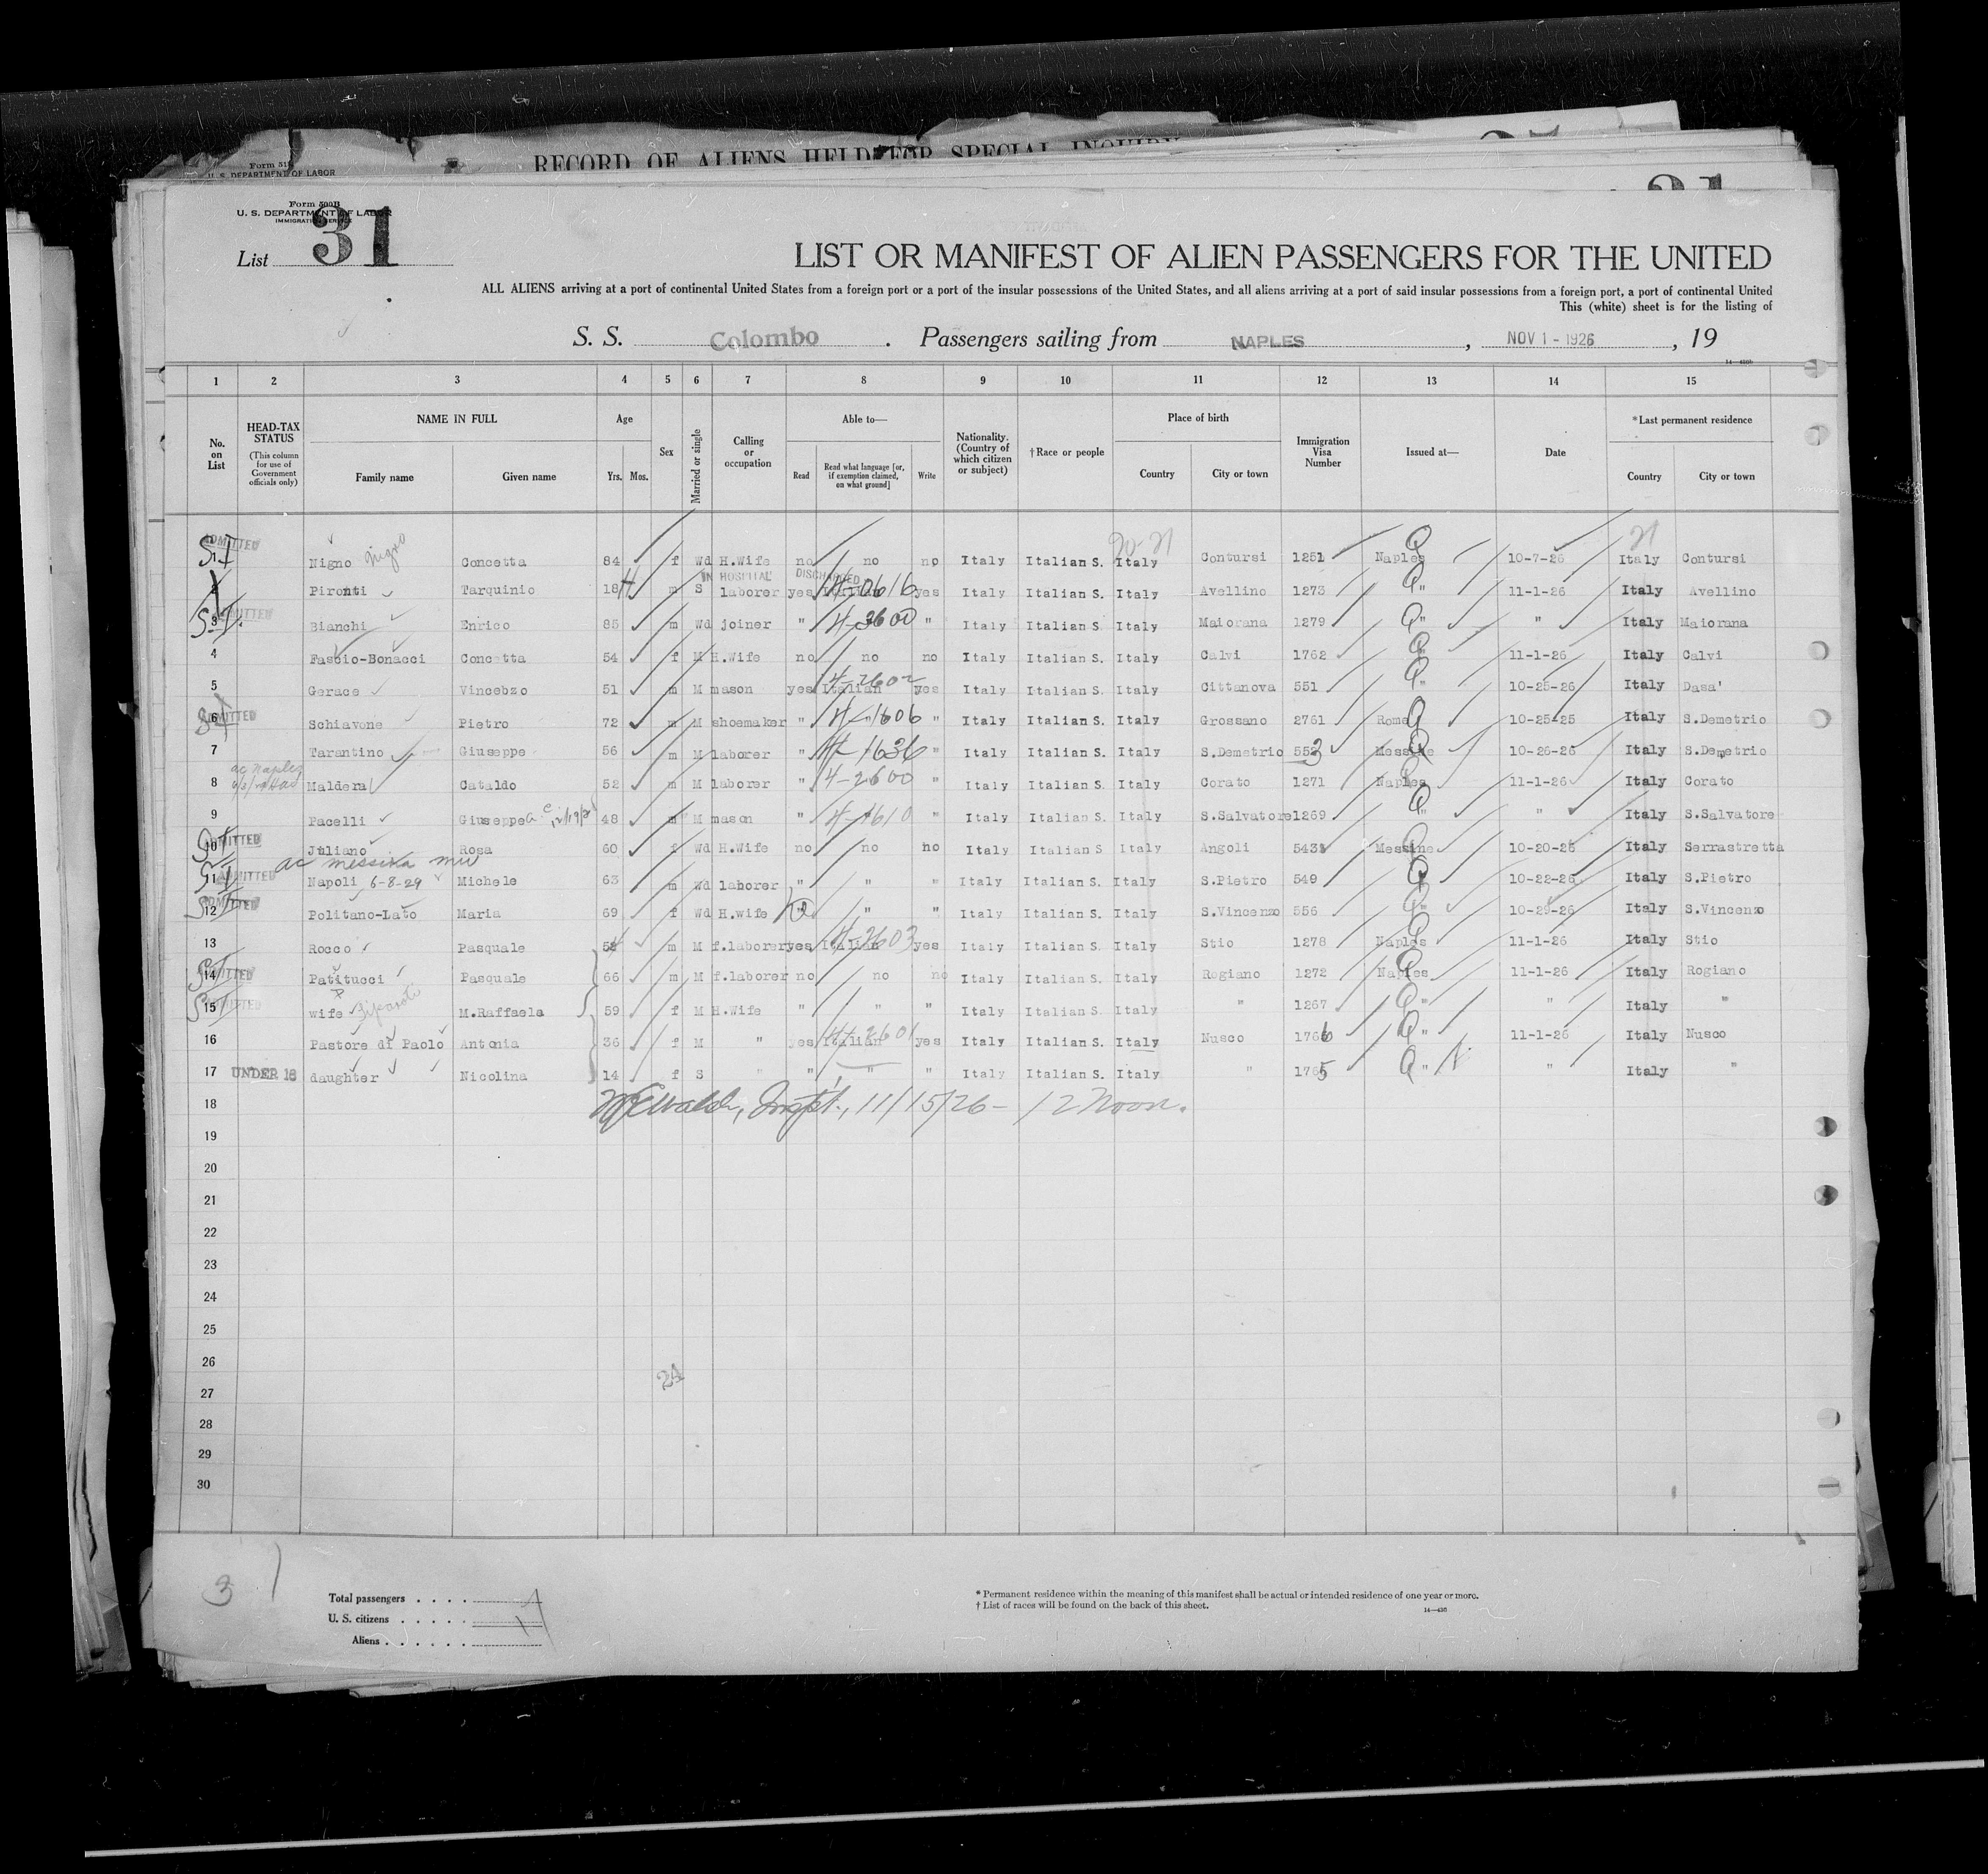 Form 511
U. S. DEPARTMENT OF LABOR
RECORD OF ALIENS HELD FOR SPECIAL INQUIRY
Form 500B
U. S. DEPARTMENT OF LABOR
IMMIGRATION SERVICE
List 31
LIST OR MANIFEST OF ALIEN PASSENGERS FOR THE UNITED
ALL ALIENS arriving at a port of continental United States from a foreign port or a port of the insular possessions of the United States, and all aliens arriving at a port of said insular possessions from a foreign port, a port of continental United
This (white) sheet is for the listing of
S. S. Colombo. Passengers sailing from NAPLES, NOV 1 - 1926, 19
1 2 3 4 5 6 7 8 9 10 11 12 13 14 15
No. on List
HEAD-TAX STATUS (This column for use of Government officials only)
NAME IN FULL Family name Given name
Age Yrs. Mos.
Sex
Married or single
Calling or occupation
Able to— Read Read what language [or, if exemption claimed, on what ground] Write
Nationality. (Country of which citizen or subject)
†Race or people
Place of birth Country City or town
Immigration Visa Number
Issued at—
Date
*Last permanent residence Country City or town
1 SI ADMITTED Nigno Nigro Concetta 84 f Wd H.Wife no no no Italy Italian S. Italy Contursi 1251 Naples 10-7-26 Italy Contursi
IN HOSPITAL DISCHARGED
2 Pironti Tarquinio 18 m S laborer yes Italian 4-0616 yes Italy Italian S. Italy Avellino 1273 " 11-1-26 Italy Avellino
3 SI ADMITTED Bianchi Enrico 85 m Wd joiner " 4-3600 " Italy Italian S. Italy Maiorana 1279 " " Italy Maiorana
4 Fascio-Bonacci Concetta 54 f M H.Wife no no no Italy Italian S. Italy Calvi 1762 " 11-1-26 Italy Calvi
5 Gerace Vincebzo 51 m M mason yes Italian 4-2602 yes Italy Italian S. Italy Cittanova 551 " 10-25-26 Italy Dasa'
6 SI ADMITTED Schiavone Pietro 72 m M shoemaker " 4-1606 " Italy Italian S. Italy Grossano 2761 Rome 10-25-25 Italy S.Demetrio
7 Tarantino Giuseppe 56 m M laborer " 4-1636 " Italy Italian S. Italy S.Demetrio 553 Messine 10-26-26 Italy S.Demetrio
ac Naples
8 Maldera Cataldo 52 m M laborer " 4-2600 " Italy Italian S. Italy Corato 1271 Naples 11-1-26 Italy Corato
9 Pacelli Giuseppe 48 m M mason " 4-1610 " Italy Italian S. Italy S.Salvatore 1269 " " Italy S.Salvatore
10 SI ADMITTED Juliano Rosa 60 f Wd H.Wife no no no Italy Italian S Italy Angoli 543 Messine 10-20-26 Italy Serrastretta
ac messina mw
11 SI ADMITTED Napoli 6-8-29 Michele 63 m Wd laborer " " " Italy Italian S. Italy S.Pietro 549 " 10-22-26 Italy S.Pietro
12 SI ADMITTED Politano-Lato Maria 69 f Wd H.wife " " " Italy Italian S. Italy S.Vincenzo 556 " 10-29-26 Italy S.Vincenzo
13 Rocco Pasquale 54 m M f.laborer yes Italian 4-2603 yes Italy Italian S. Italy Stio 1278 Naples 11-1-26 Italy Stio
14 SI ADMITTED Patitucci Pasquale 66 m M f.laborer no no no Italy Italian S. Italy Rogiano 1272 Naples 11-1-26 Italy Rogiano
15 SI ADMITTED wife M.Raffaela 59 f M H.Wife " " " Italy Italian S. Italy " 1267 " " Italy "
16 Pastore di Paolo Antonia 36 f M " yes Italian 4-2601 yes Italy Italian S. Italy Nusco 1766 " 11-1-26 Italy Nusco
17 UNDER 16 daughter Nicolina 14 f S " " " " Italy Italian S. Italy " 1765 " " Italy "
18 11/15/26 - 12 Noon.
19
20
21
22
23
24
25
26
24
27
28
29
30
3 1
Total passengers
U. S. citizens
Aliens
* Permanent residence within the meaning of this manifest shall be actual or intended residence of one year or more.
† List of races will be found on the back of this sheet.